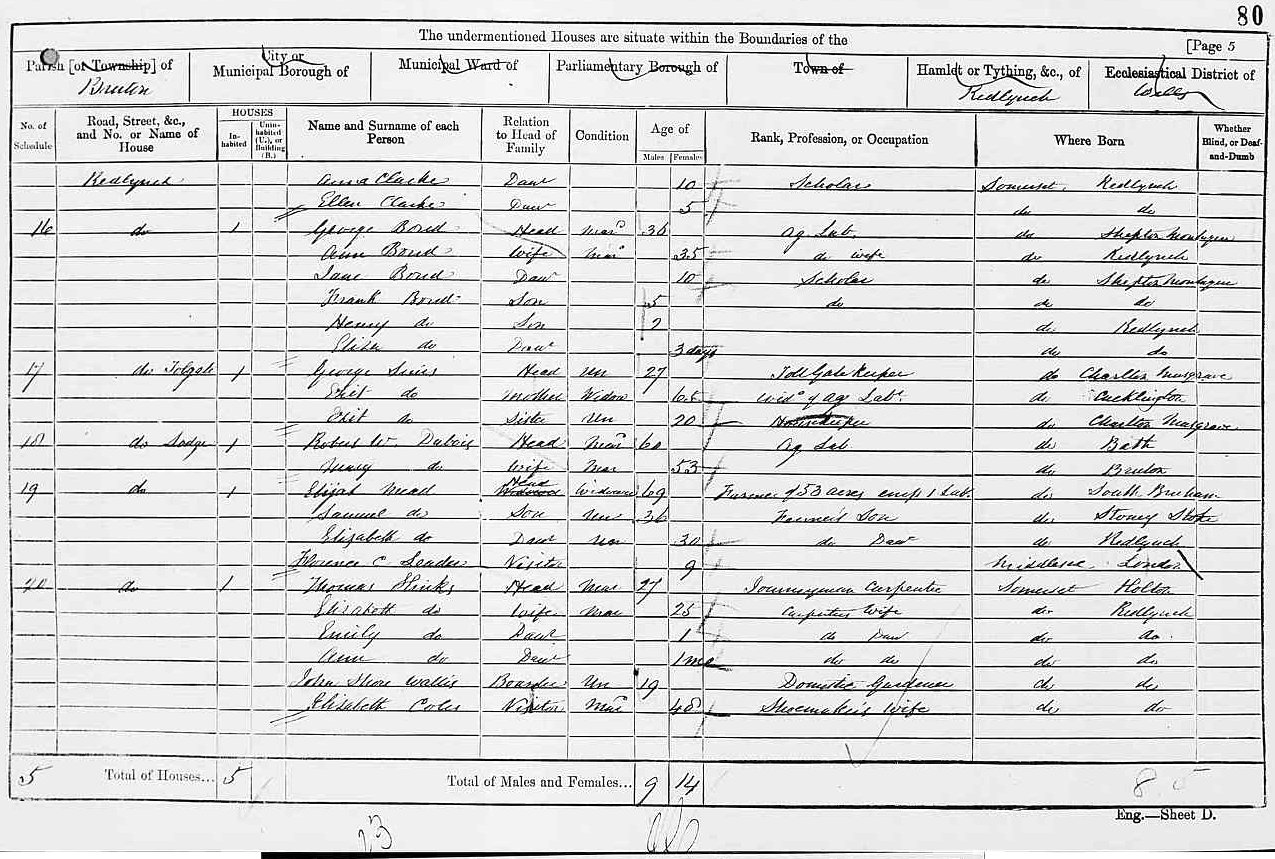 80
The undermentioned Houses are situate within the Boundaries of the
[Page 5
Parish [or Township] of
City or Municipal Borough of
Municipal Ward of
Parliamentary Borough of
Town of
Hamlet or Tything, &c., of
Ecclesiastical District of
Bruton
Redlynch
No. of Schedule
Road, Street, &c., and No. or Name of House
HOUSES
In-habited
Unin-habited (U.), or Building (B.)
Name and Surname of each Person
Relation to Head of Family
Condition
Age of
Males
Females
Rank, Profession, or Occupation
Where Born
Whether Blind, or Deaf-and-Dumb
Redlynch Anna Clarke Daur 10 Scholar Somerset Redlynch
Ellen Clarke Daur 5 do do
16 do 1 George Bond Head Mar 36 Ag Lab do Shepton Montague
Ann Bond Wife Mar 35 do wife do Redlynch
Jane Bond Daur 10 Scholar do Shepton Montague
Frank Bond Son 5 do do do
Henry do Son 2 do Redlynch
Eliza do Daur 3 days do do
17 do Tolgate 1 George Sims Head Un 27 Toll Gate Keeper do Charlton Musgrove
do Mother Widow Wid of Ag Labr do Cucklington
do Sister Un 20 Housekeeper do Charlton Musgrove
18 do Lodge 1 Robert W. Head Mar 60 Ag Lab do Bath
Mary do Wife Mar 53 do Bruton
19 do 1 Elijah Mead Head Widower 69 Farmer of 53 acres emp 1 Lab do South Bruham
Samuel do Son Un 36 Farmer's Son do Stoney Stoke
Elizabeth do Daur Un 30 do Daur do Redlynch
Florence C Visitor 9 Middlesex London
20 do 1 Thomas Hinks Head Mar 27 Journeyman Carpenter Somerset Holton
Elizabeth do Wife Mar 25 Carpenters Wife do Redlynch
Emily do Daur 1 do Daur do do
Ann do Daur 1 mo do do do do
John Shore Wallis Boarder Un 19 Domestic Gardener do do
Elizabeth Coles Visitor Mar 48 Shoemakers Wife do do
5 Total of Houses... 5
Total of Males and Females... 9 14
8 5
Eng.—Sheet D.
23